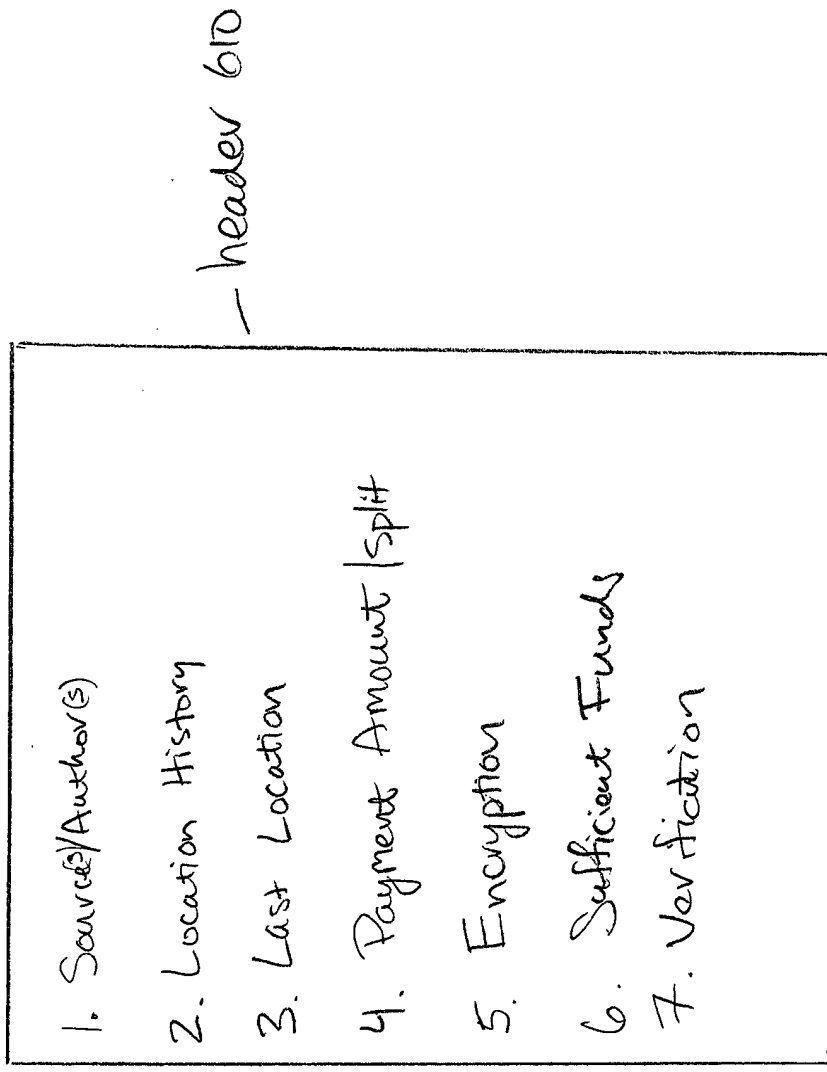 1. Source(s)/Author(s)
2. Location History
3. Last Location
4. Payment Amount/Split
5. Encryption
6. Sufficient Funds
7. Verification
header 610